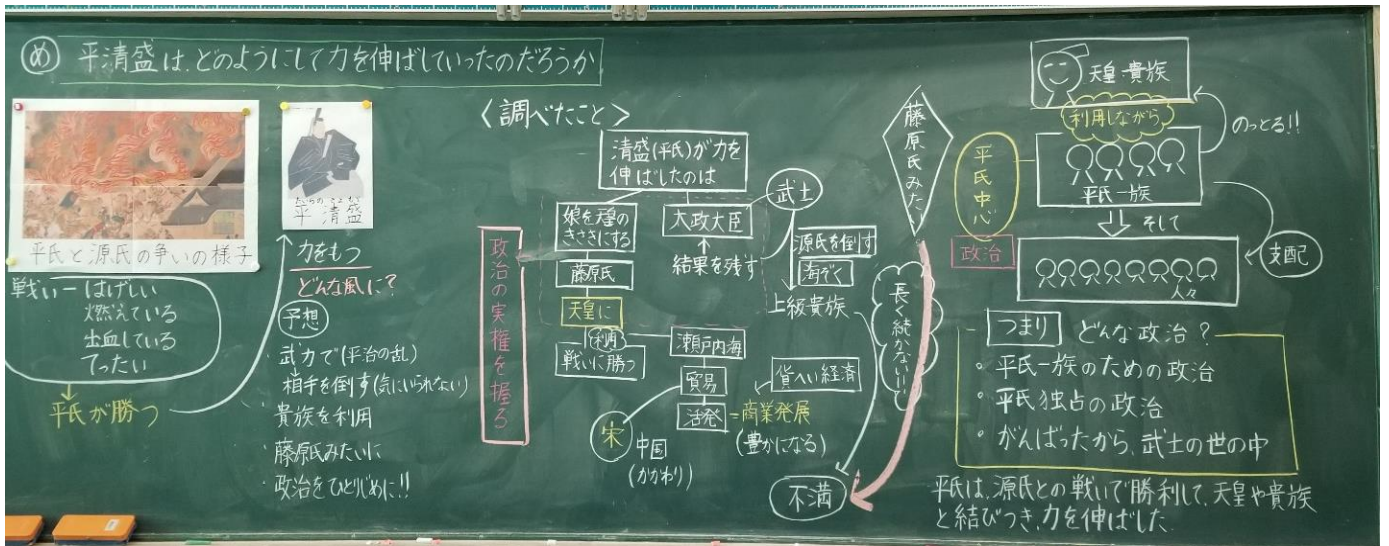 め 平清盛は、どのようにして力を伸ばしていったのだろうか
平氏と源氏の争いの様子
戦いーはげしい
燃えている
出血している
てったい
平氏が勝つ
平清盛
力をもつ
どんな風に?
予想
・武力で(平治の乱)
相手を倒す(気にいられない)
・貴族を利用
・藤原氏みたいに
・政治をひとりじめに!!
〈調べたこと〉
清盛(平氏)が力を
伸ばしたのは
政治の実権を握る
娘を天皇の
きさきにする
藤原氏
天皇に
利用
戦いに勝つ
太政大臣
結果を残す
武士
源氏を倒す
海ぞく
上級貴族
瀬戸内海
貿易
活発
=商業発展
(豊かになる)
貨へい経済
宋
中国
(かかわり)
藤原氏みたい
長く続かない!!
不満
天皇・貴族
利用しながら
のっとる!!
平氏中心
平氏一族
そして
政治
支配
人々
つまり どんな政治?
・平氏一族のための政治
・平氏独占の政治
・がんばったから、武士の世の中
平氏は、源氏との戦いで勝利して、天皇や貴族
と結びつき、力を伸ばした。